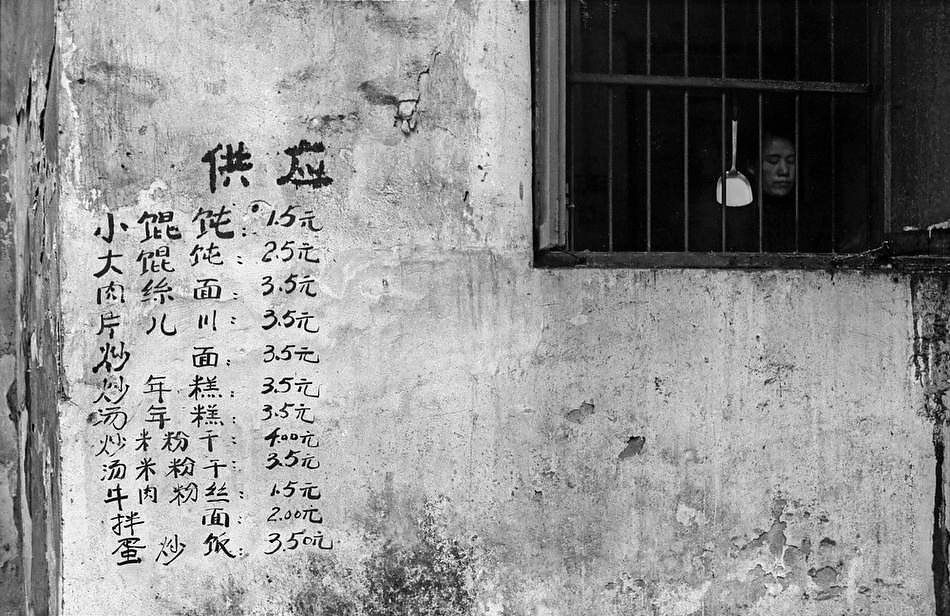 供应
小馄饨: 1.5元
大馄饨: 2.5元
肉丝面: 3.5元
片儿川: 3.5元
炒 面: 3.5元
炒年糕: 3.5元
汤年糕: 3.5元
炒米粉干: 4.00元
汤米粉干: 3.5元
牛肉粉丝: 1.5元
拌 面: 2.00元
蛋炒饭: 3.50元